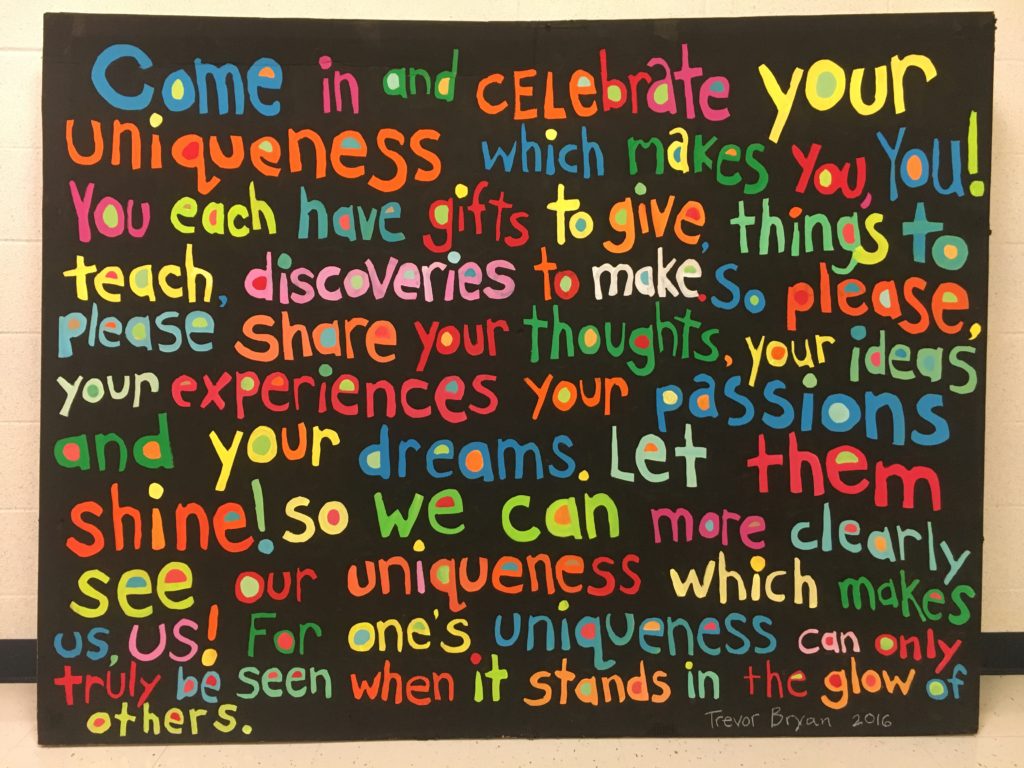 Come in and CELebrate your
uniqueness which makes you, You!
You each have gifts to give, things to
teach, discoveries to make. So please,
please share your thoughts, your ideas
your experiences your passions
and your dreams. Let them
shine! so we can more clearly
see our uniqueness which makes
us, us! For one's uniqueness can only
truly be seen when it stands in the glow of
others.
Trevor Bryan 2016